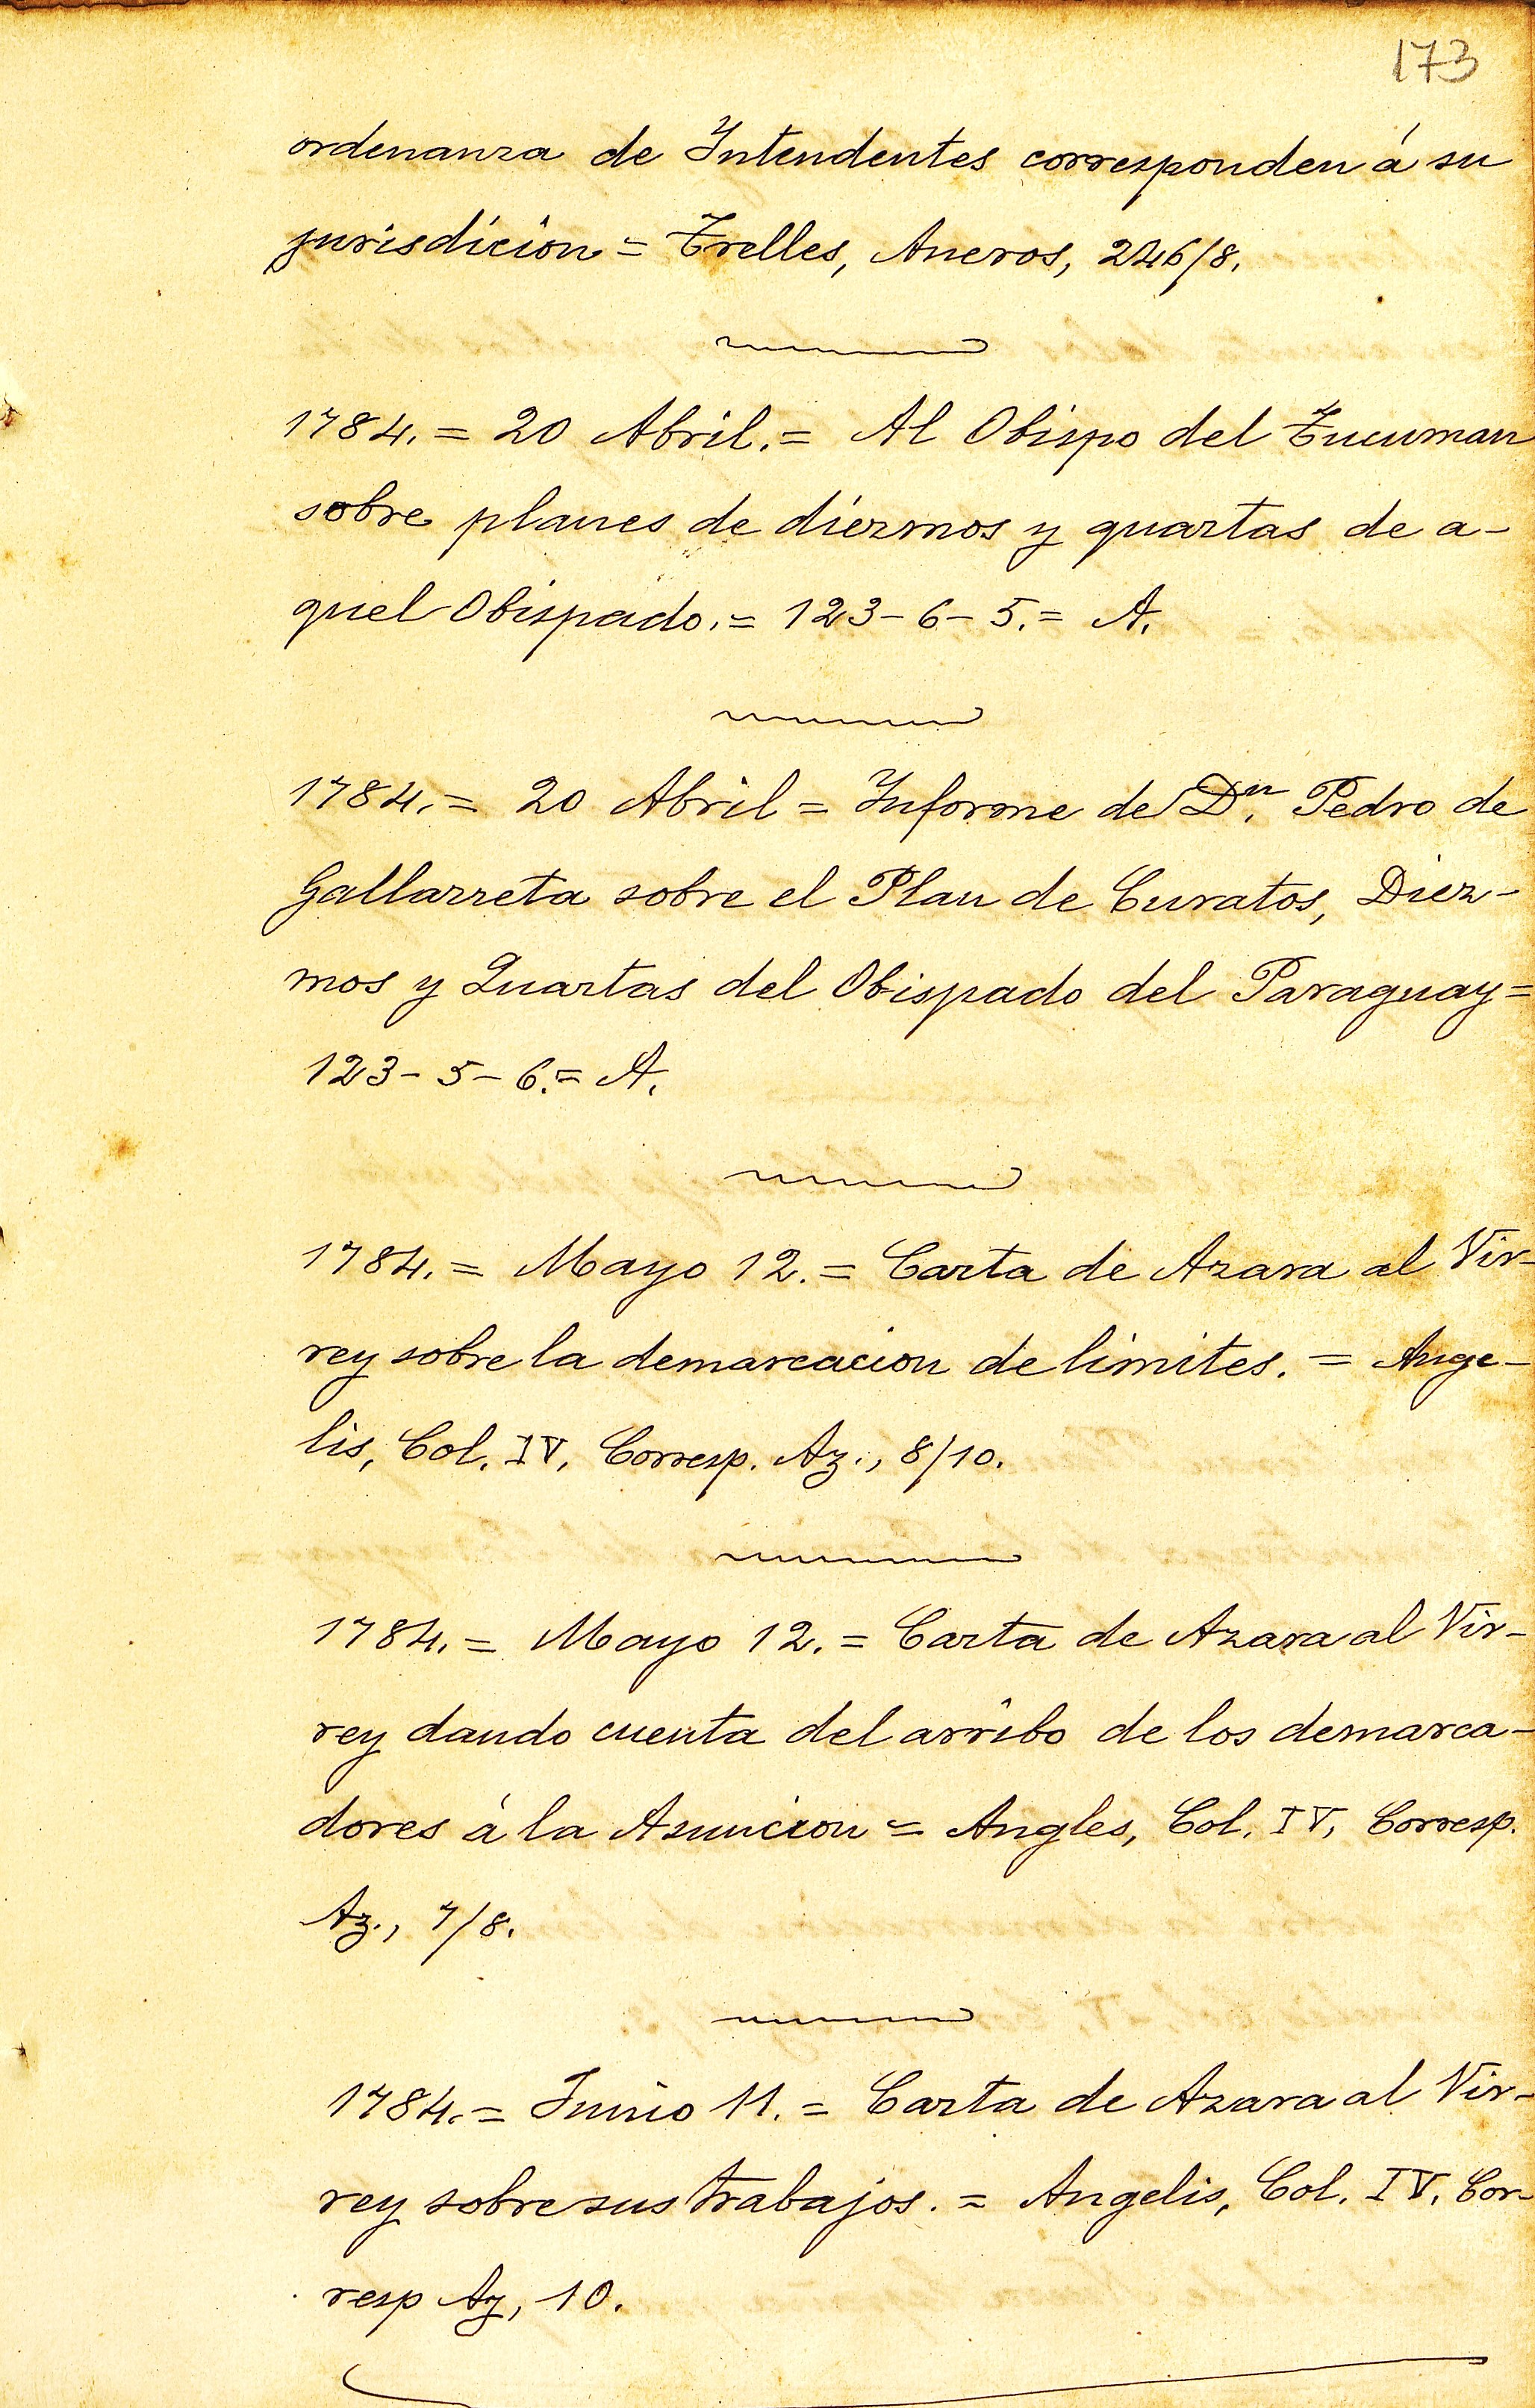 173
ordenanza de Intendentes corresponden á su
jurisdicion = Trelles, Aneros, 246/8.
1784. = 20 Abril. = Al Obispo del Tucuman
sobre planes de diezmos y quartas de a-
quel Obispado. = 123-6-5. = A.
1784. = 20 Abril = Informe de Dn. Pedro de
Gallarreta sobre el Plan de Curatos, Diez-
mos y Quartas del Obispado del Paraguay =
123-5-6. = A.
1784. = Mayo 12. = Carta de Azara al Vir-
rey sobre la demarcacion de limites. = Ange-
lis, Col. IV, Corresp. Az., 8/10.
1784. = Mayo 12. = Carta de Azara al Vir-
rey dando cuenta del arribo de los demarca-
dores á la Asuncion = Angles, Col. IV, Corresp.
Az., 7/8.
1784. = Junio 11. = Carta de Azara al Vir-
rey sobre sus trabajos. = Angelis, Col. IV. Cor-
resp Az, 10.